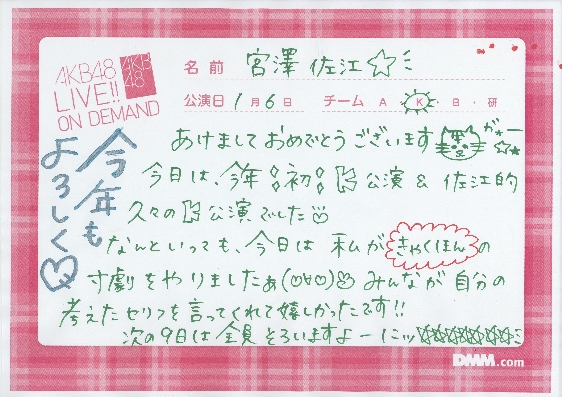 AKB48
LIVE!!
ON DEMAND
AKB
48
名前 宮澤 佐江☆
公演日 1月6日 チーム A・K・B・研
あけまして おめでとう ございます が॰ー
今日は、今年 初 K 公演 & 佐江的
久々の K 公演でした♡
なんといっても、今日は 私が きゃくほん の
寸劇をやりましたぁ(♡∀♡)♡ みんなが自分の
考えたセリフを言ってくれて嬉しかったです!!
次の9日は全員そろいますよーにッ
今年も
よろしく♡
DMM.com